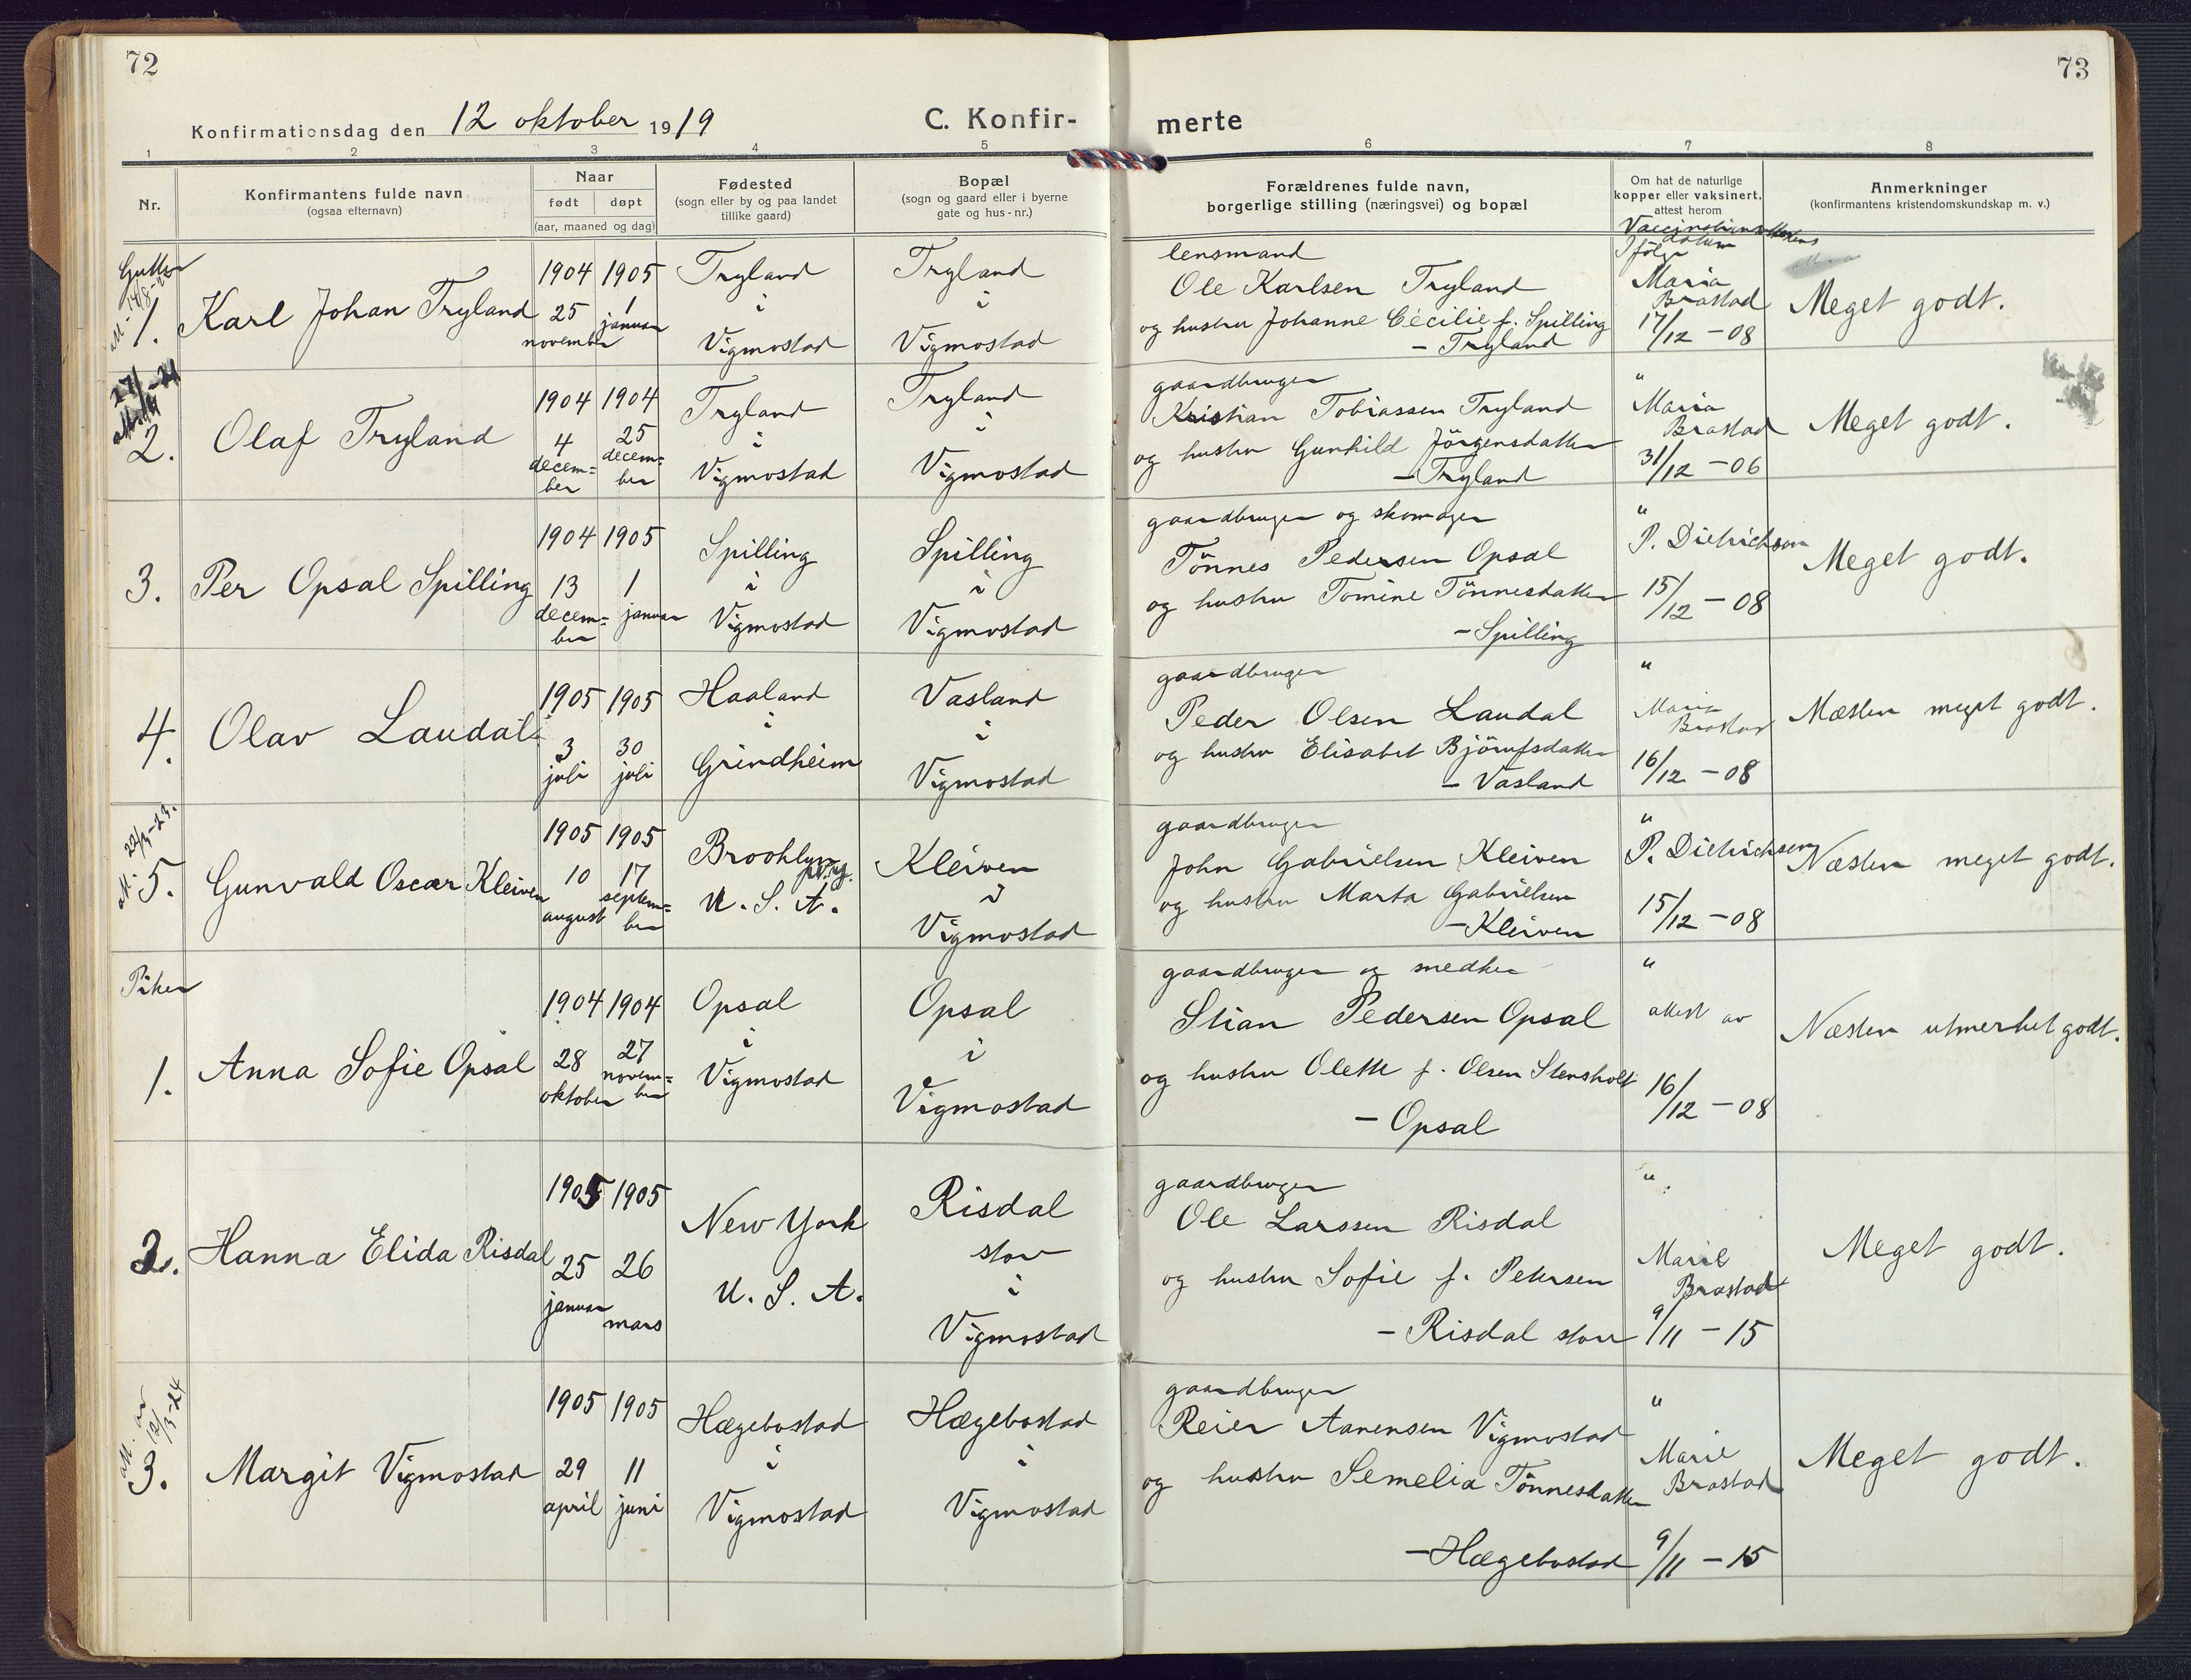 72
73
Konfirmationsdag den 12 oktober 1919
C. Konfir-
merte
1 2 3 4 5 6 7 8
Nr.
Konfirmantens fulde navn
(ogsaa efternavn)
Naar
født døpt
(aar, maaned og dag)
Fødested
(sogn eller by og paa landet
tillike gaard)
Bopæl
(sogn og gaard eller i byerne
gate og hus-nr.)
Forældrenes fulde navn,
borgerlige stilling (næringsvei) og bopæl
Om hat de naturlige
kopper eller vaksinert,
attest herom
Anmerkninger
(konfirmantens kristendomskundskap m. v.)
datum
Ifølge
Gutter
1.
Karl Johan Tryland
1904 1905
25 1
november januar
Tryland
i
Vigmostad
Tryland
i
Vigmostad
lensmand
Ole Karlsen Tryland
og hustru Johanne Cecilie f. Spilling
- Tryland
Maria
Brastad
17/12 - 08
Meget godt.
2.
Olaf Tryland
1904 1904
4 25
decem= decem=
ber ber
Tryland
i
Vigmostad
Tryland
i
Vigmostad
gaardbruger
Kristian Tobiassen Tryland
og hustru Gunhild Jörgensdatter
- Tryland
"
Maria
Brastad
31/12 - 06
Meget godt.
3.
Per Opsal Spilling
1904 1905
13 1
decem= januar
ber
Spilling
i
Vigmostad
Spilling
i
Vigmostad
gaardbruger og skomager
Tönnes Pedersen Opsal
og hustru Tomine Tönnesdatter
- Spilling
"
P. Dietrichson
15/12 - 08
Meget godt.
4.
Olav Laudal
1905 1905
3 30
juli juli
Haaland
i
Grindheim
Vasland
i
Vigmostad
gaardbruger
Peder Olsen Laudal
og hustru Elisabet Björnfsdatter
- Vasland
"
Maria
Brastad
16/12 - 08
Næsten meget godt.
att. 22/3-23.
5.
Gunvald Oscar Kleiven
1905 1905
10 17
august septem=
ber
Brooklyn
N.Y.
U. S. A.
Kleiven
i
Vigmostad
gaardbruger
John Gabrielsen Kleiven
og hustru Marta Gabrielsen
- Kleiven
"
P. Dietrichsen
15/12 - 08
Næsten meget godt.
Piker
1.
Anna Sofie Opsal
1904 1904
28 27
oktober novem=
ber
Opsal
i
Vigmostad
Opsal
i
Vigmostad
gaardbruger og
Stian Pedersen Opsal
og hustru Olette f. Olsen Stensholt
- Opsal
"
attest av
16/12 - 08
Næsten utmerket godt.
2.
Hanna Elida Risdal
1905 1905
25 26
januar mars
New York
U. S. A.
Risdal
stor
i
Vigmostad
gaardbruger
Ole Larssen Risdal
og hustru Sofie f. Petersen
- Risdal store
"
Marie
Brastad
9/11 - 15
Meget godt.
att. av 12/3-24
3.
Margit Vigmostad
1905 1905
29 11
april juni
Hægebostad
i
Vigmostad
Hægebostad
i
Vigmostad
gaardbruger
Reier Aanensen Vigmostad
og hustru Semelia Tönnesdatter
- Hægebostad
"
Marie
Brastad
9/11 - 15
Meget godt.